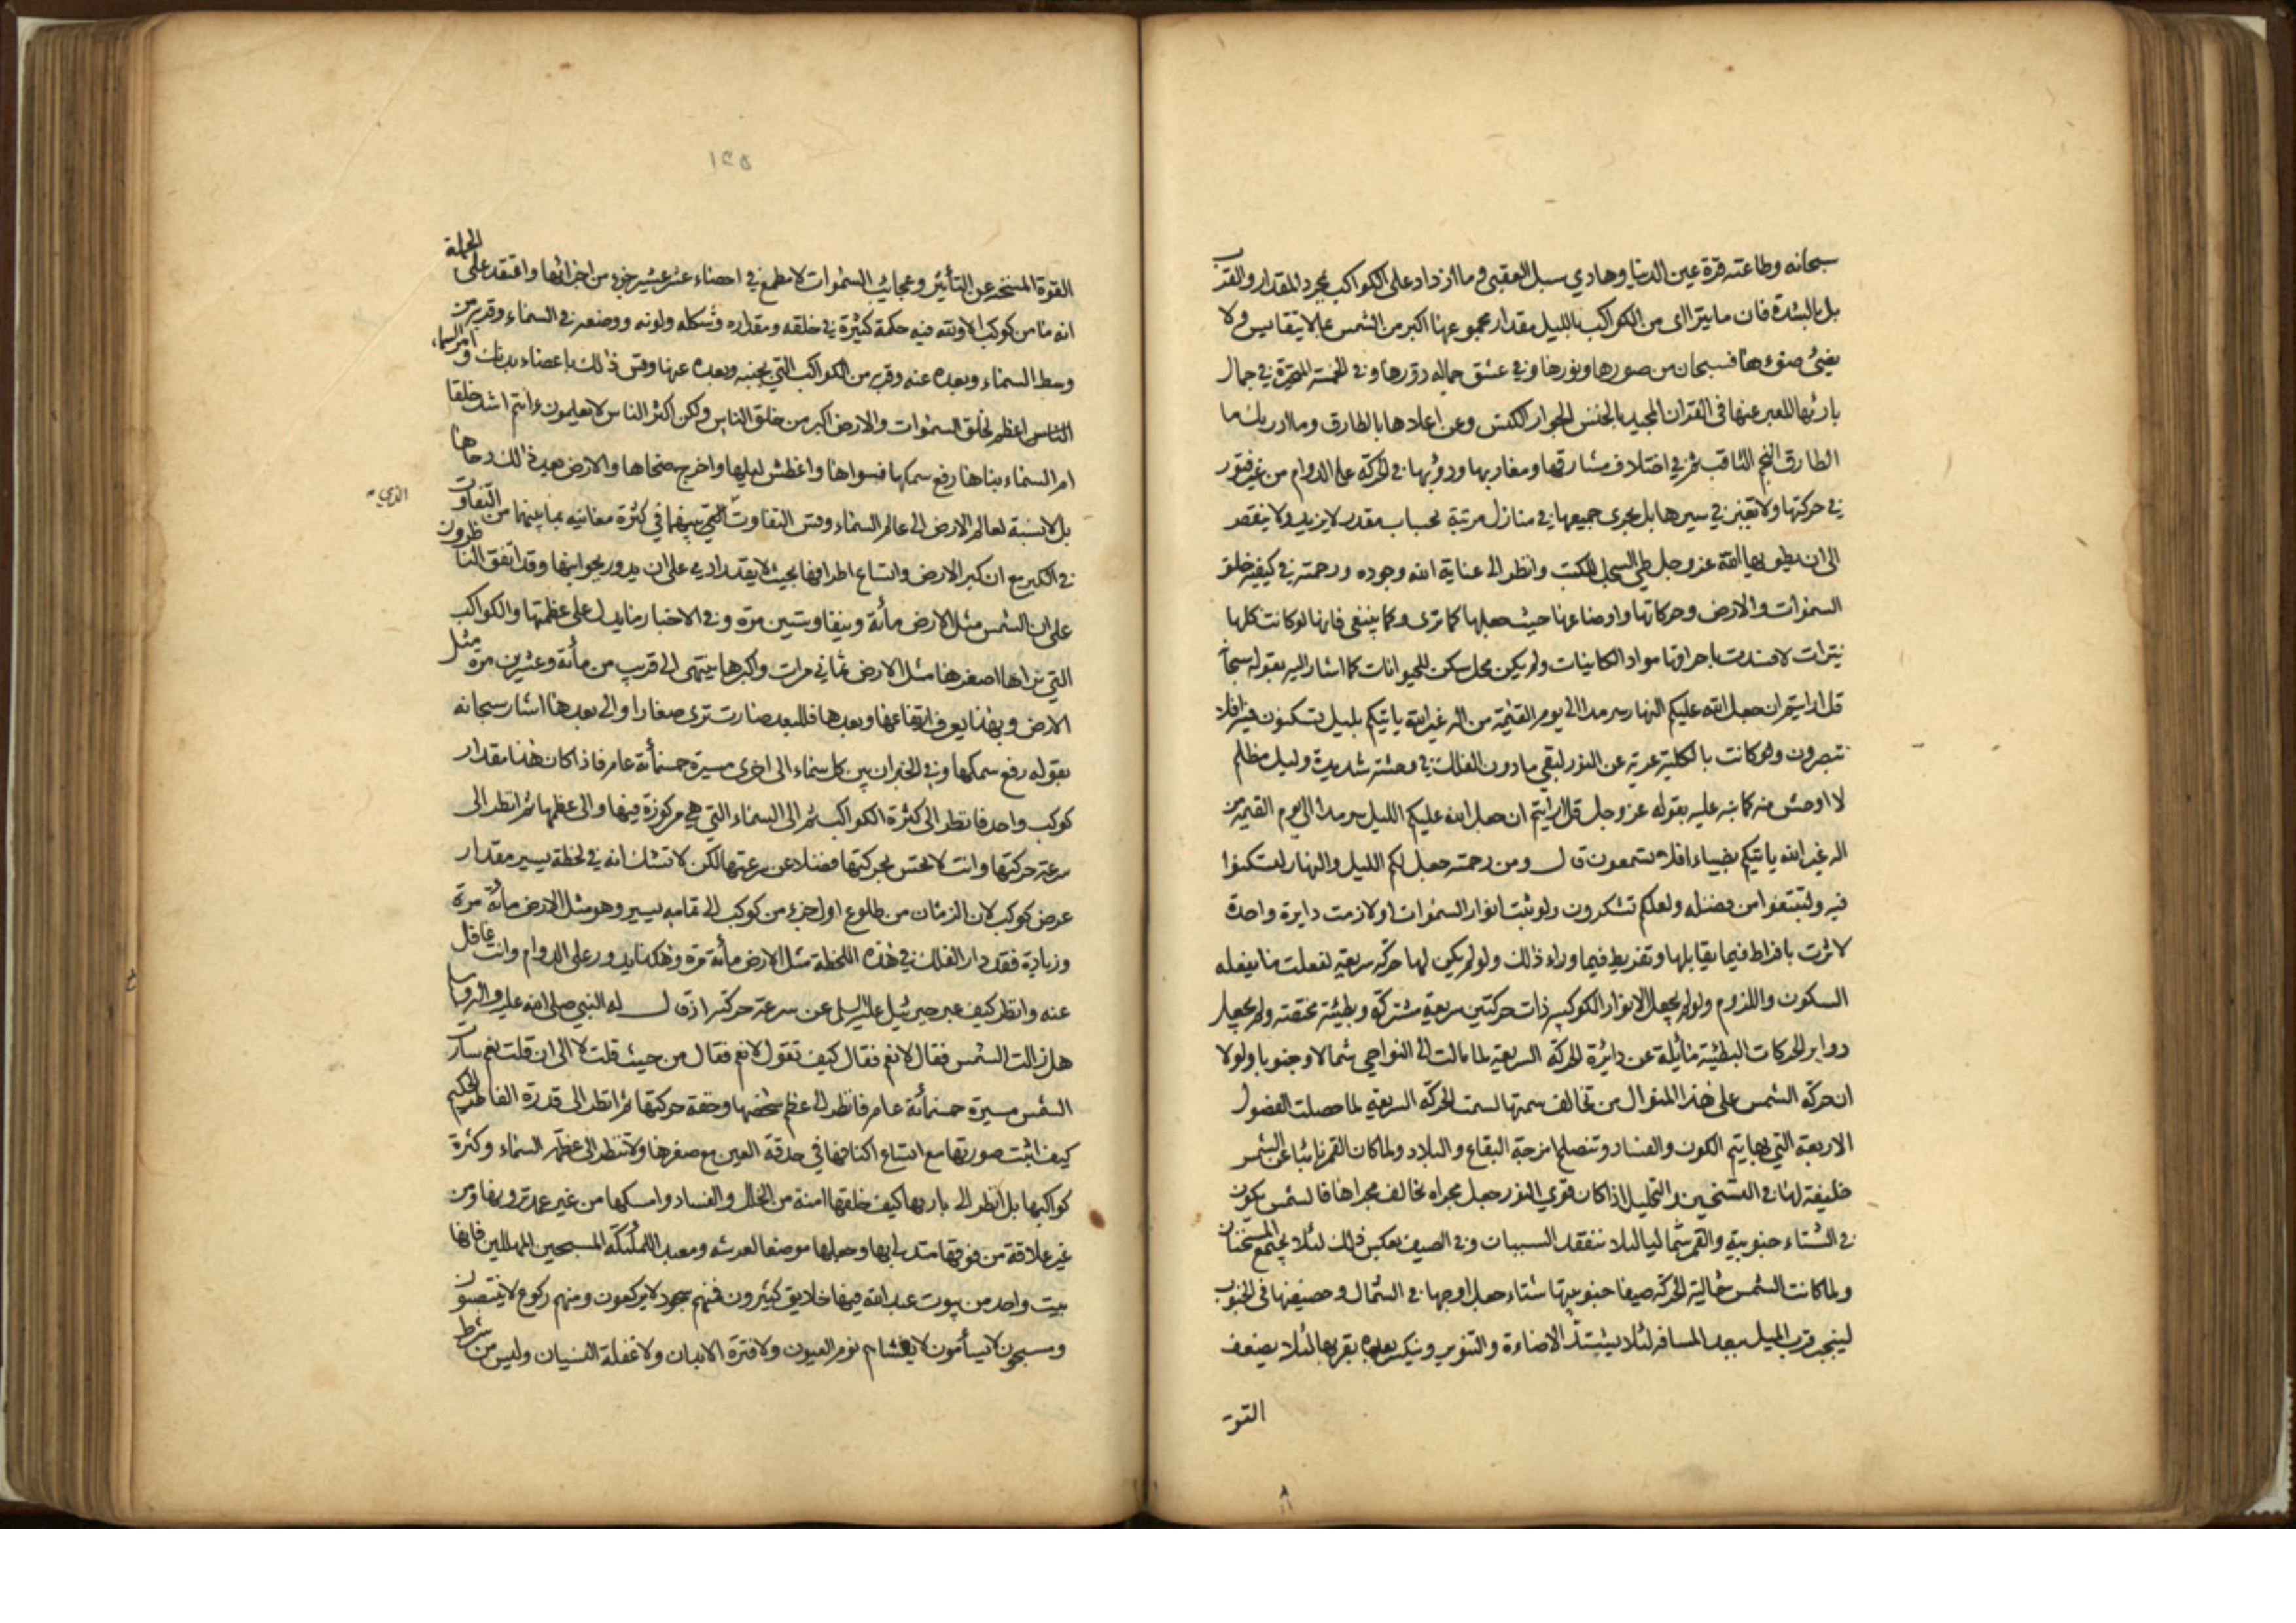 سبحانه وطاعته قرة عين الدنيا وهادي سبل العقبى وما ازداد على الكواكب بمجرد المقدار والقرب
بل بالشدة فان ما يتراأى من الكواكب بالليل مقدار مجموعها اكبر من الشمس بما لا يتقايس ولا
يضئ ضوءها فسبحان من صورها ونورها وفي عشق جماله دورها وفي الخمسة المتحيرة في جمال
بارئها المعبر عنها في القران المجيد بالخنس الجوار الكنس وعن اعلاها بالطارق وما ادريك ما
الطارق النجم الثاقب ثم في اختلاف مشارقها ومغاربها ودؤبها في الحركة على الدوام من غير فتور
في حركتها ولا تغير في سيرها بل يجرى جميعها في منازل مرتبة بحساب مقدر لا يزيد ولا ينقص
الى ان يطويها الله عز وجل طي السجل للكتب وانظر الى عناية الله وجوده ورحمته في كيفية خلق
السموات والارض وحركاتها واوضاعها حيث جعلها كما ترى وكما ينبغي فانها لو كانت كلها
نيرات لافسدت باحراقها مواد الكاينات ولم يكن محل سكن للحيوانات كما اشار اليه بقوله سبحانه
قل ارايتم ان جعل الله عليكم النهار سرمدا الى يوم القيمة من اله غير الله ياتيكم بليل تسكنون فيه افلا
تبصرون ولو كانت بالكلية عرية عن النور لبقي ما دون الفلك في وحشة شديدة وليل مظلم
لا اوحش منه كما نبه عليه بقوله عز وجل قل ارايتم ان جعل الله عليكم الليل سرمدا الى يوم القيمة من
اله غير الله ياتيكم بضياء افلا تسمعون قال ومن رحمته جعل لكم الليل والنهار لتسكنوا
فيه ولتبتغوا من فضله ولعلكم تشكرون ولو ثبت انوار السموات او لازمت دايرة واحدة
لاثرت بافراط فيما يقابلها وتفريط فيما وراء ذلك ولو لم يكن لها حركة سريعة لفعلت ما يفعله
السكون واللزوم ولو لم يجعل الانوار الكوكبية ذات حركتين سريعة مشتركة وبطيئة مختصة ولم يجعل
دواير الحركات البطيئة مائلة عن دائرة الحركة السريعة لما مالت الى النواحي شمالا وجنوبا ولولا
ان حركة الشمس على هذا المنوال من تخالف سمتها لسمت الحركة السريعة لما حصلت الفصول
الاربعة التي بها يتم الكون والفساد وتنصلح امزجة البقاع والبلاد ولما كان القمر نائبا عن الشمس
خليفة لها في التسخين والتحليل اذا كان قوي النور جعل مجراه تخالف مجراها فالشمس يكون
في الشتاء جنوبية والقمر شماليا لئلا ينفقد السببان وفي الصيف بعكس ذلك لئلا يجتمع المسخنان
ولما كانت الشمس شمالية الحركة صيفا جنوبيتها شتاء جعل اوجها في الشمال وحضيضها في الجنوب
لينجبر قرب الميل ببعد المسافه لئلا يشتد الاضاءة والتنوير وينكسر بعده بقربها لئلا يضعف
القوة
١٢٥
القوة المسخنه عن التأثير وعجايب السموات لا مطمع في احصاء عشر عشير جزء من اجزائها واعتقد على الجملة
انه ما من كوكب الا ولله فيه حكمة كثيرة في خلقه ومقداره وشكله ولونه ووضعه في السماء وقربه من
وسط السماء وبعده عنه وقربه من الكواكب التي بجنبه وبعده عنها وقس ذلك باعضاء بدنك وامر السماء
الناس اعظم لخلق السموات والارض اكبر من خلق الناس ولكن اكثر الناس لا يعلمون ءانتم اشد خلقا
ام السماء بناها رفع سمكها فسواها واغطش ليلها واخرج ضحاها والارض بعد ذلك دحاها
بل لا نسبة لعالم الارض الى عالم السماء وقس التفاوت التي بينهما في كثرة معانيه بما بينهما من التفاوت
الذي
في الكبر مع ان كبر الارض واتساع اطرافها بحيث لا يقدر ادمي على ان يدور بجوانبها وقد اتفق الناظرون
على ان الشمس مثل الارض مأئة ونيفا وستين مرة وفي الاخبار ما يدل على عظمتها والكواكب
التي نراها اصغرها مثل الارض ثماني مرات واكبرها ينتهى الى قريب من مأئة وعشرين مرة مثل
الارض وبهذا يعرف ارتفاعها وبعدها فللبعد صارت ترى صغارا والى بعدها اشار سبحانه
بقوله رفع سمكها وفي الخبر ان بين كل سماء الى اخرى مسيرة خمسمأئة عام فاذا كان هذا مقدار
كوكب واحد فانظر الى كثرة الكواكب ثم الى السماء التي هي مركوزة فيها والى عظمها ثم انظر الى
سرعة حركتها وانت لا تحس بحركتها فضلا عن سرعتها لكن لا تشك انه في لحظة يسير مقدار
عرض كوكب لان الزمان من طلوع اول جزء من كوكب الى تمامه يسير وهو مثل الارض مأئة مرة
وزيادة فقد دار الفلك في هذه اللحظة مثل الارض مأئة مرة وهكذا يدور على الدوام وانت غافل
عنه وانظر كيف عبر جبرئيل عليه السلم عن سرعة حركته اذ قال له النبي صلى الله عليه واله وسلم
هل زالت الشمس فقال لا نعم فقال كيف تقول لا نعم فقال من حيث قلت لا الى ان قلت نعم سارت
الشمس مسيرة خمسمائة عام فانظر الى عظم شخصها وخفة حركتها ثم انظر الى قدرة الفاطر الحكيم
كيف اثبت صورتها مع اتساع اكنافها في حدقة العين مع صغرها ولا تنظر الى عظم السماء وكثرة
كواكبها بل انظر الى باريها كيف خلقها امنة من الخلل والفساد وامسكها من غير عمد ترونها ومن
غير علاقة من فوقها متدلى بها وجعلها موضعا لعرشه ومعبد الملئكة المسبحين المهللين فانها
بيت واحد من بيوت عبد الله فيها خلايق كثيرون فمنهم سجود لا يركعون ومنهم ركوع لا ينتصبون
ومسبحون لا يسأمون لا يغشاهم نوم العيون ولا فترة الابدان ولا غفلة النسيان وليس من شرط